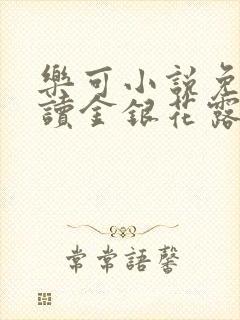 樂可小說免
讀金銀花露
常常語馨